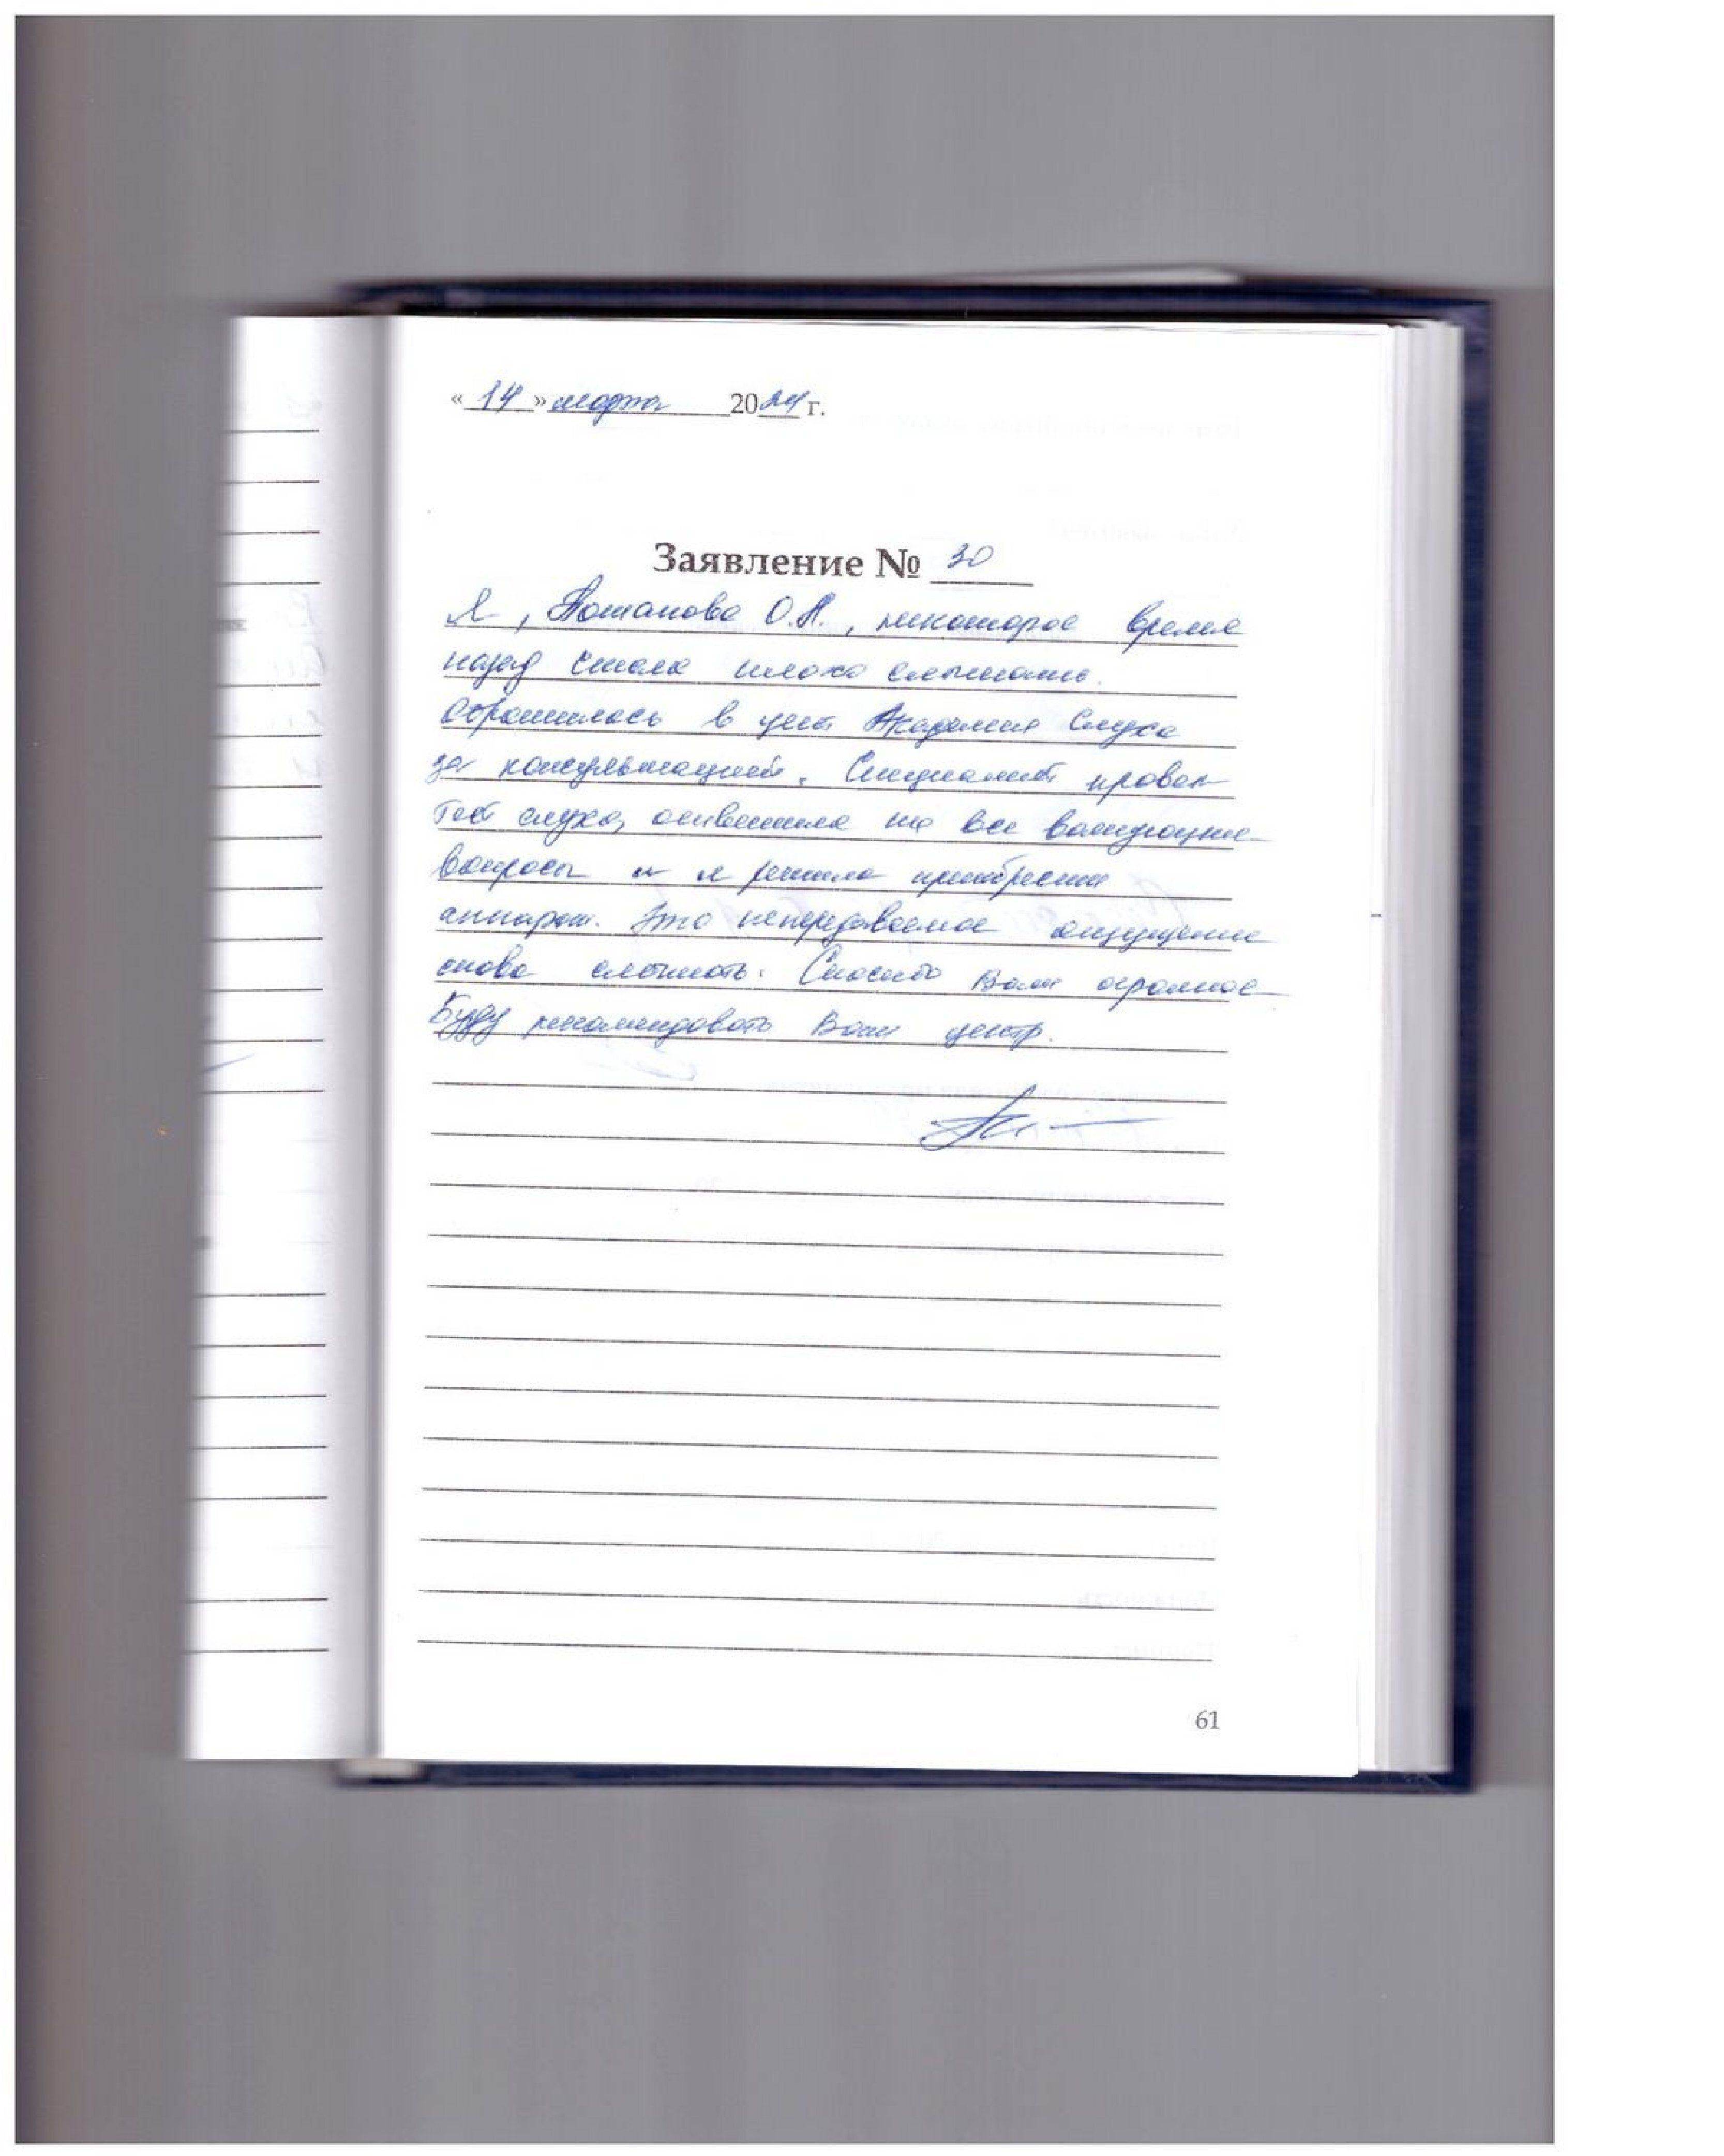 « 14 » марта 2024 г.
Заявление № 30
Я, Потапова О.П., некоторое время
назад стала плохо слышать.
Обратилась в цент Академия Слуха
за консультацией. Специалист провел
тест слуха, ответила на все волнующие
вопросы и я решила приобрести
аппарат. Это непередаваемое ощущение
снова слышать. Спасибо Вам огромное
Буду рекомендовать Ваш центр.
61